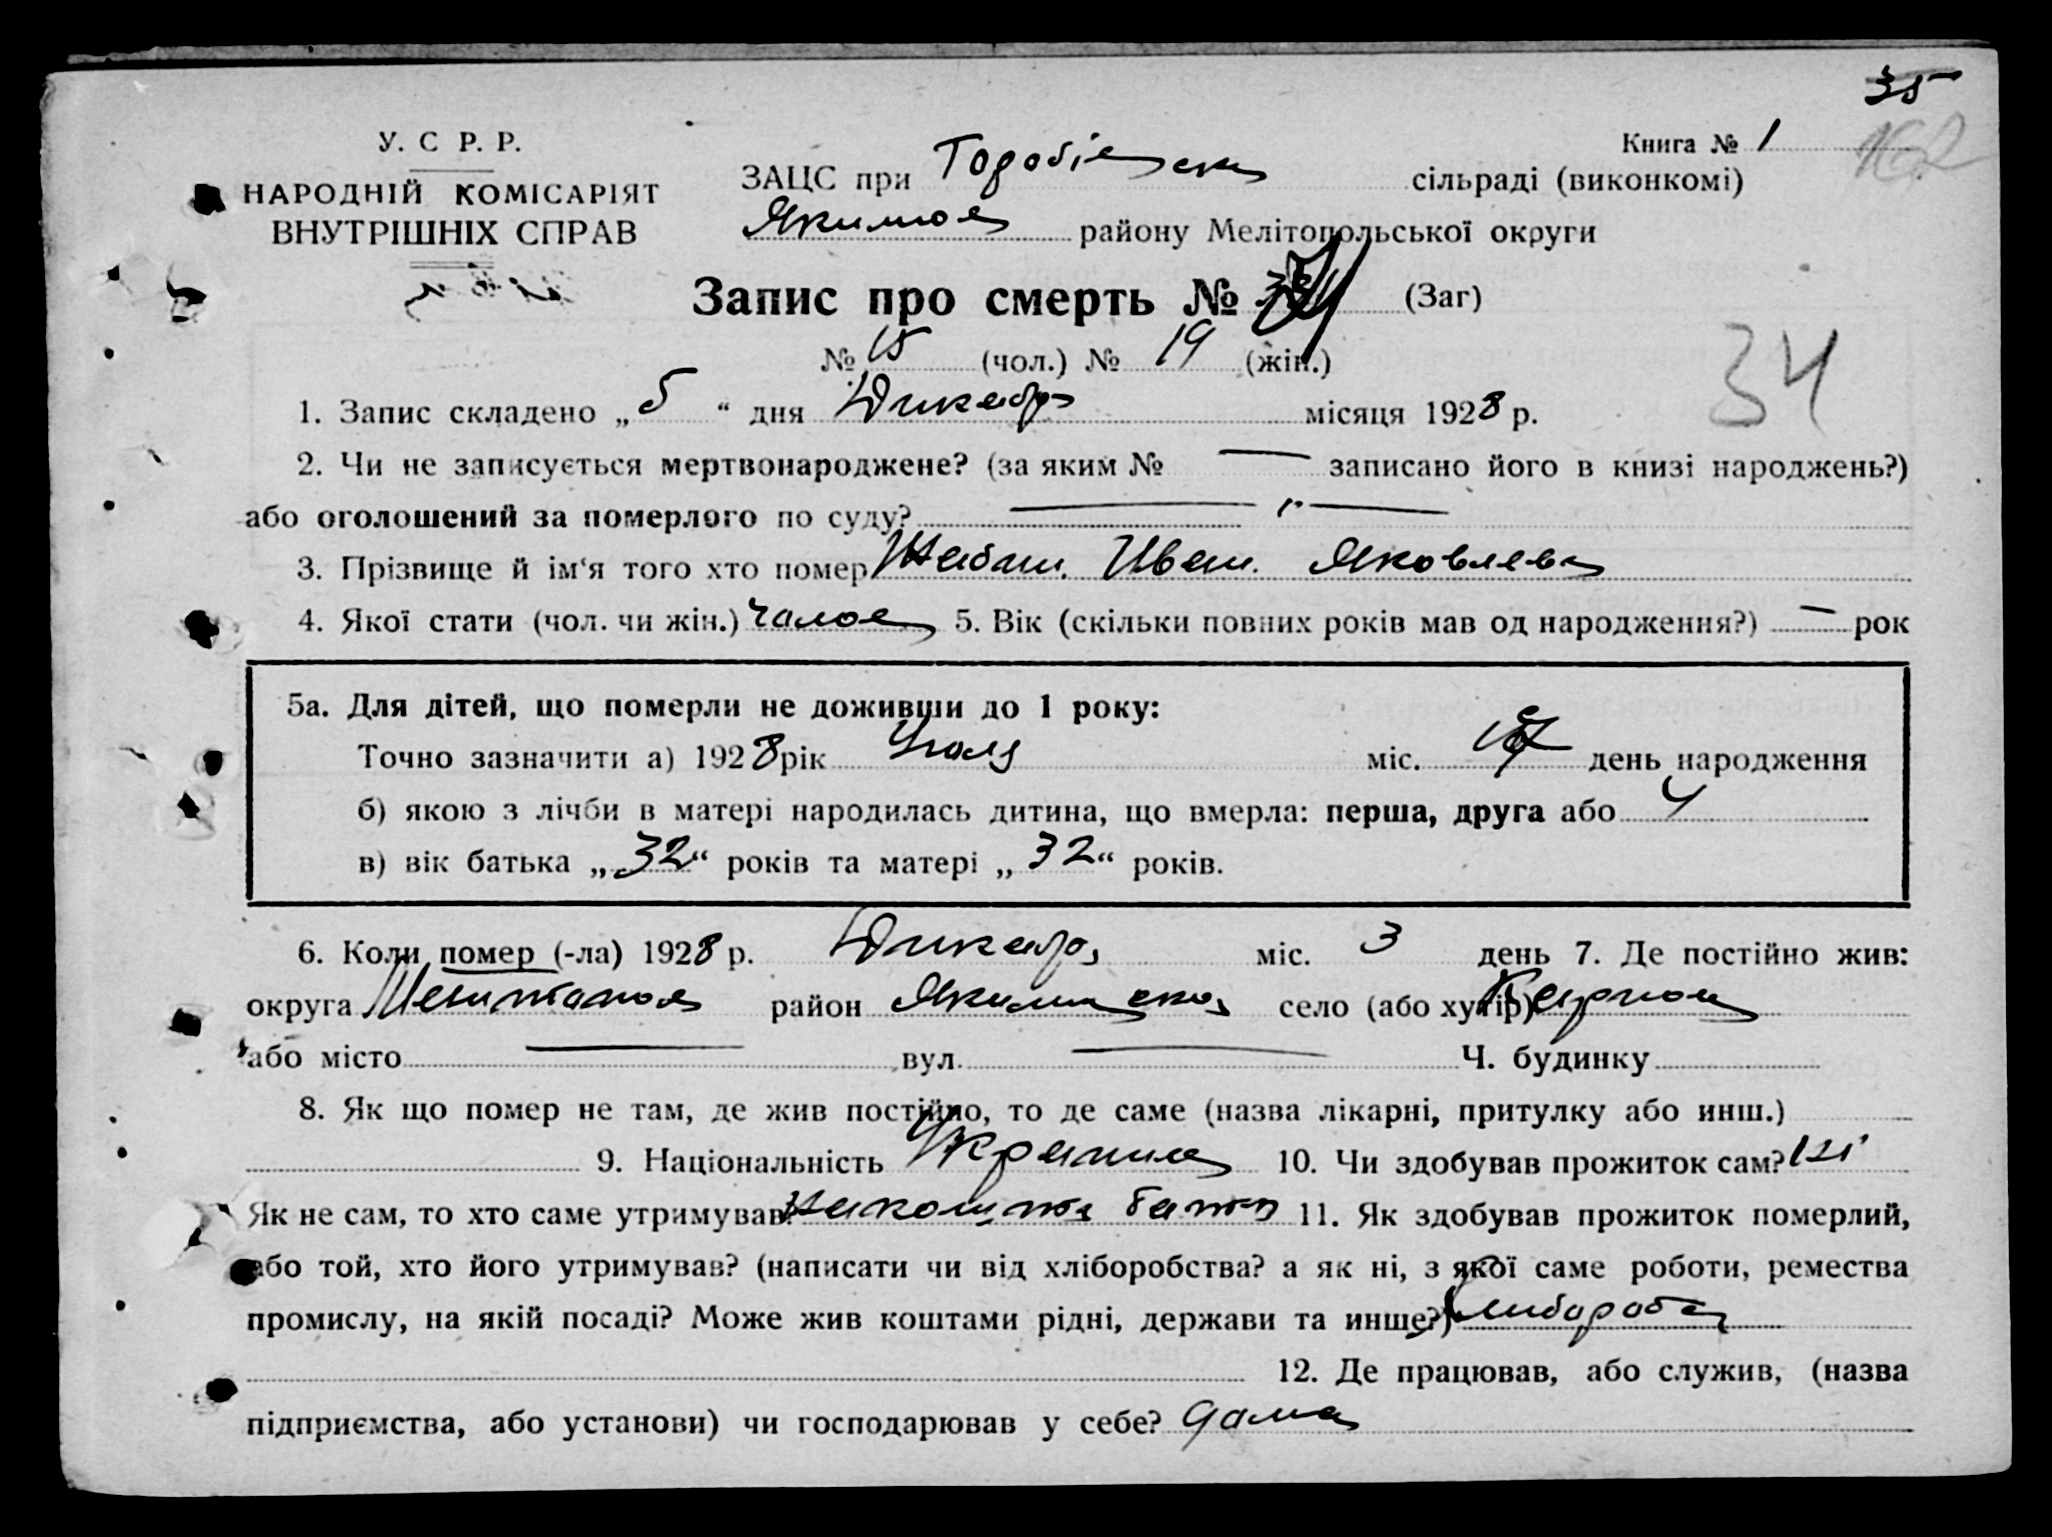 35
162
У. С Р. Р.
НАРОДНІЙ КОМІСАРІЯТ
ВНУТРІШНІХ СПРАВ
Книга № 1
ЗАЦС при сільраді (виконкомі)
Якимов району Мелітопольської округи
Запис про смерть № (Заг)
34
№ 15 (чол.) № 19 (жін.)
1. Запис складено „ 5 “ дня Дикабря місяця 1928 р.
2. Чи не записується мертвонароджене? (за яким № — записано його в книзі народжень?)
або оголошений за померлого по суду? — „ —
3. Прізвище й ім‘я того хто помер Иван Яковлев
4. Якої стати (чол. чи жін.) 5. Вік (скільки повних років мав од народження?) — рок
5а. Для дітей, що померли не доживши до 1 року:
Точно зазначити а) 1928 рік міс. день народження
б) якою з лічби в матері народилась дитина, що вмерла: перша, друга або 4
в) вік батька „ 32 “ років та матері „ 32 “ років.
6. Коли помер (-ла) 1928 р. Дикабря міс. 3 день 7. Де постійно жив:
округа Мелитопол район Якимовско село (або хутір)
або місто — вул. — Ч. будинку
8. Як що помер не там, де жив постійно, то де саме (назва лікарні, притулку або инш.)
9. Національність 10. Чи здобував прожиток сам? ні
Як не сам, то хто саме утримував? 11. Як здобував прожиток померлий,
або той, хто його утримував? (написати чи від хліборобства? а як ні, з якої саме роботи, ремества
промислу, на якій посаді? Може жив коштами рідні, держави та инше?)
12. Де працював, або служив, (назва
підприємства, або установи) чи господарював у себе? дома